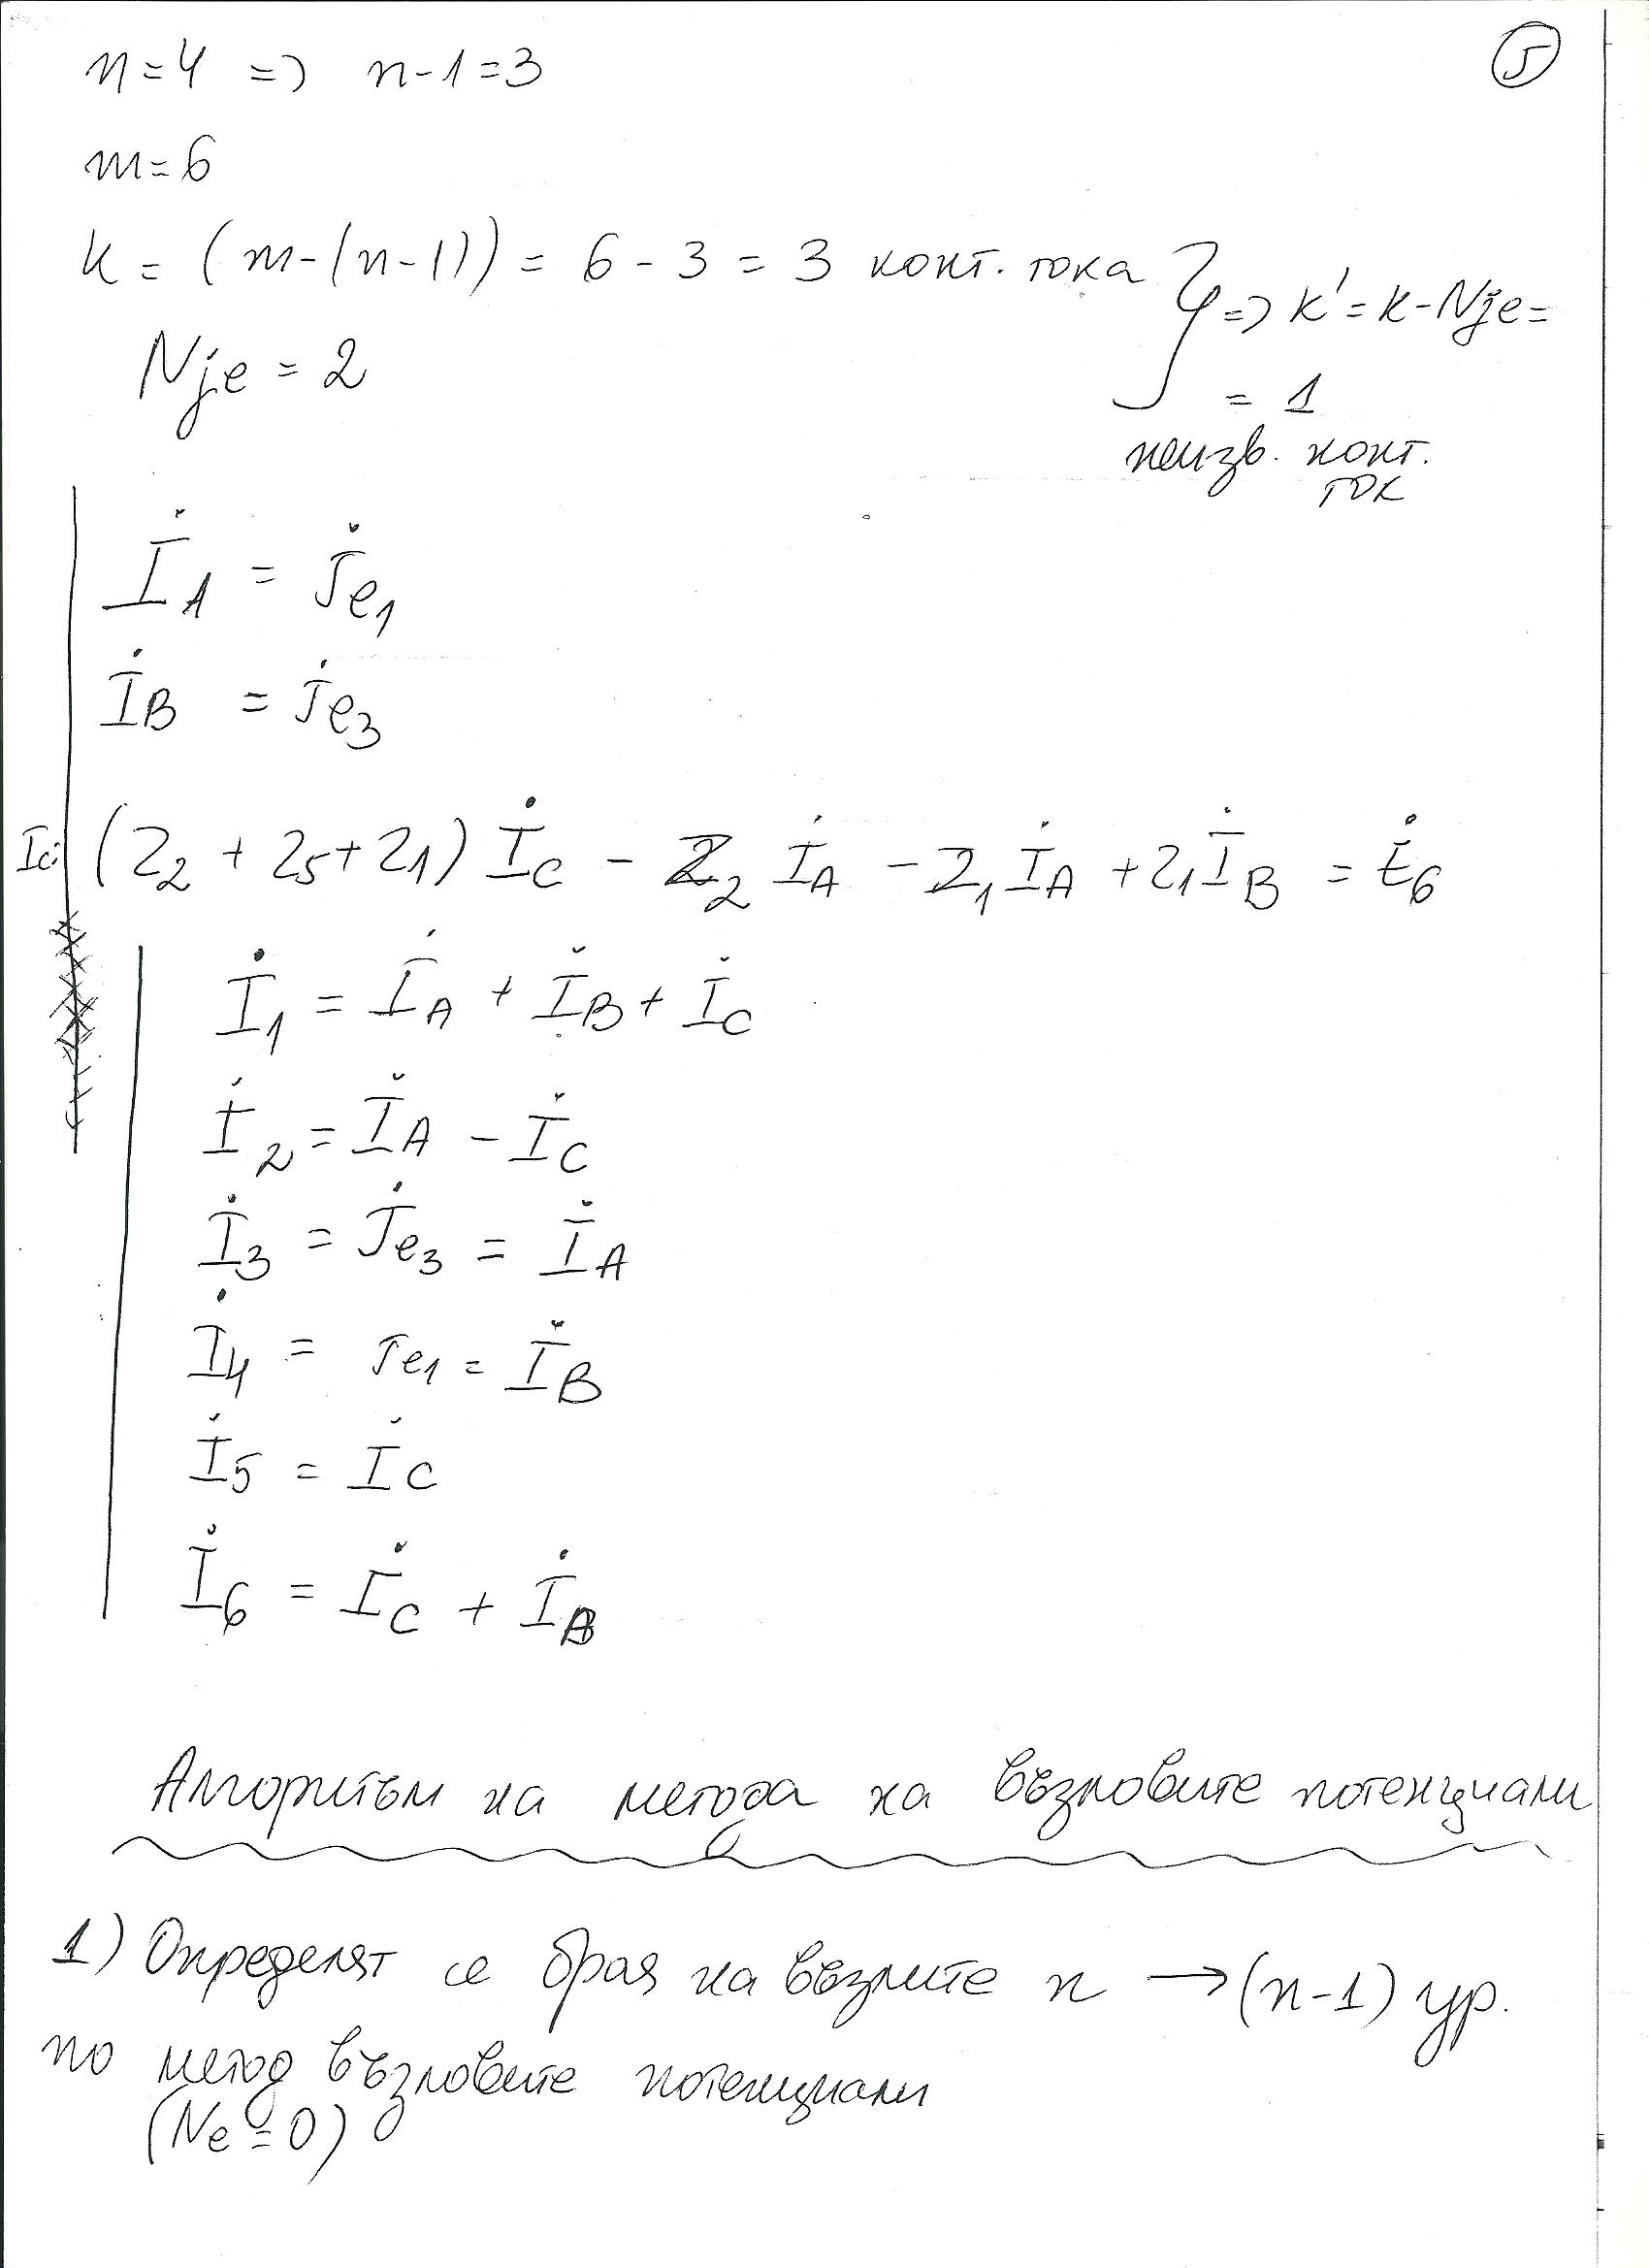 5
n=4 => n-1=3
m=6
k = (m-(n-1)) = 6 - 3 = 3 конт. тока } => k' = k - Nje =
Nje = 2
= 1
неизв. конт.
ток
İ_A = J̇e1
İ_B = J̇e3
Ic: (Z2 + Z5 + Z1) İ_C - Z2 İ_A - Z1 İ_A + Z1 İ_B = Ė6
İ1 = İ_A + İ_B + İ_C
İ2 = İ_A - İ_C
İ3 = J̇e3 = İ_A
İ4 = Je1 = İ_B
İ5 = İ_C
İ6 = İ_C + İ_B
Алгоритъм на метода на възловите потенциали
1) Определят се броя на възлите n → (n-1) ур.
по метод възловите потенциали
(Ne = 0)